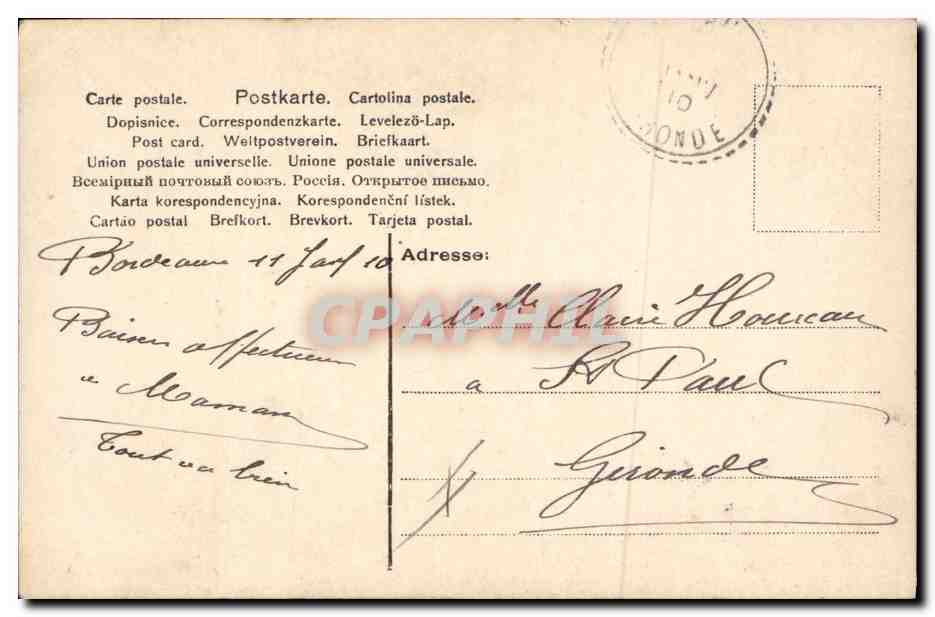 Carte postale. Postkarte. Cartolina postale.
Dopisnice. Correspondenzkarte. Levelező-Lap.
Post card. Weltpostverein. Briefkaart.
Union postale universelle. Unione postale universale.
Всемірный почтовый союзъ. Россія. Открытое письмо.
Karta korespondencyjna. Korespondenční lístek.
Cartão postal Brefkort. Brevkort. Tarjeta postal.
10
RONDE
Bordeaux 11 10
Baisers affectueux
a Maman
Tout va bien
Adresse:
Melle Claire
a St Paul
Gironde
CPAPHIL